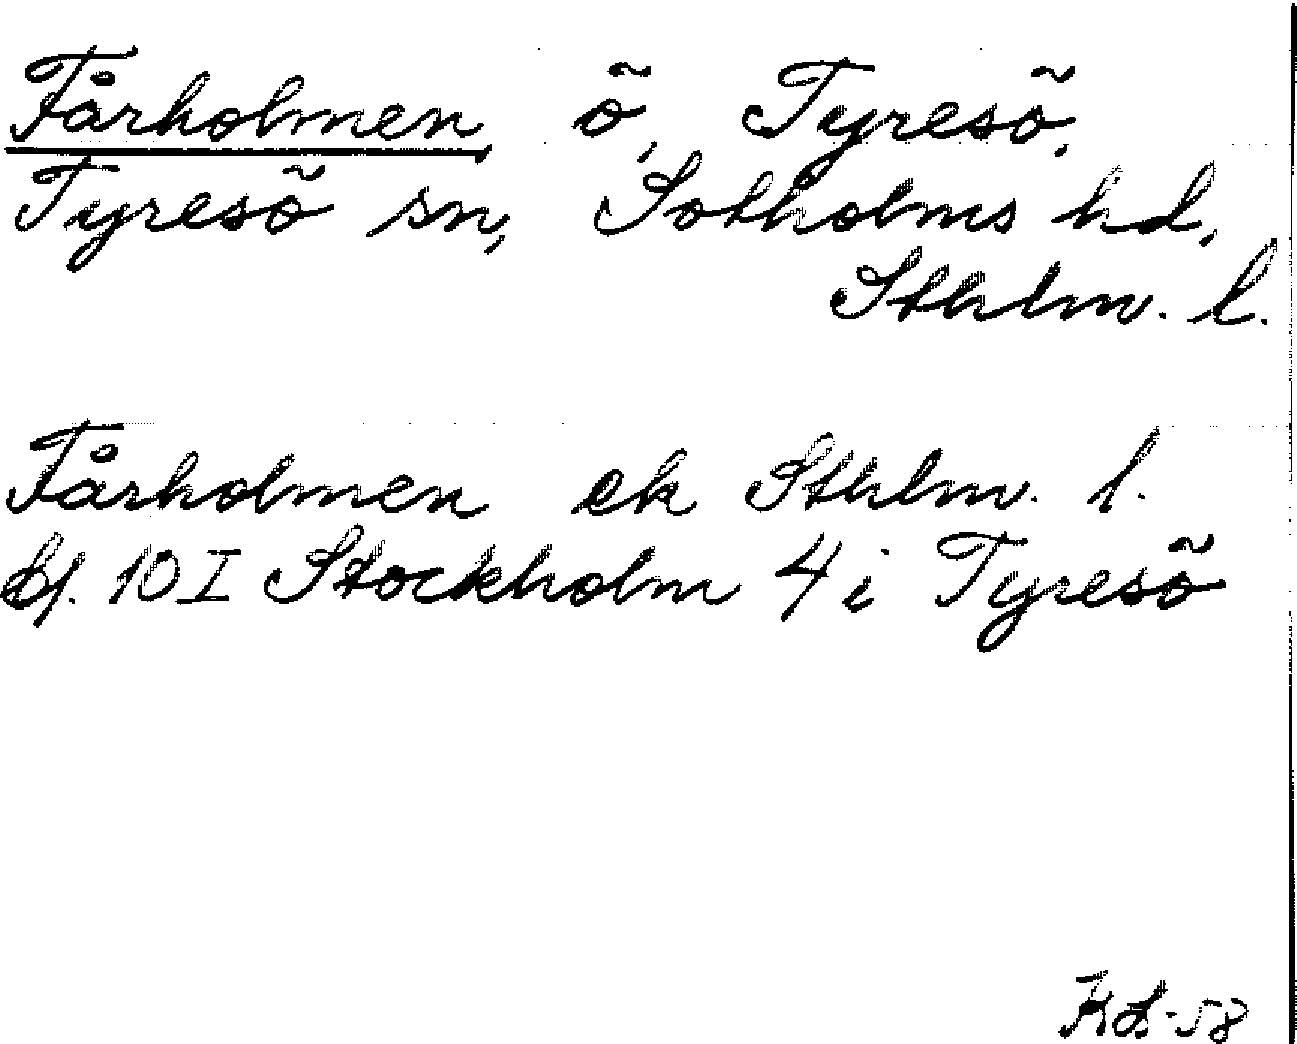 Fårholmen, ö, Tyresö,
Tyresö sn, Sotholms hd,
Sthlm. l.
Fårholmen ek Sthlm. l.
bl. 10 I Stockholm 4 i Tyresö
KL-58